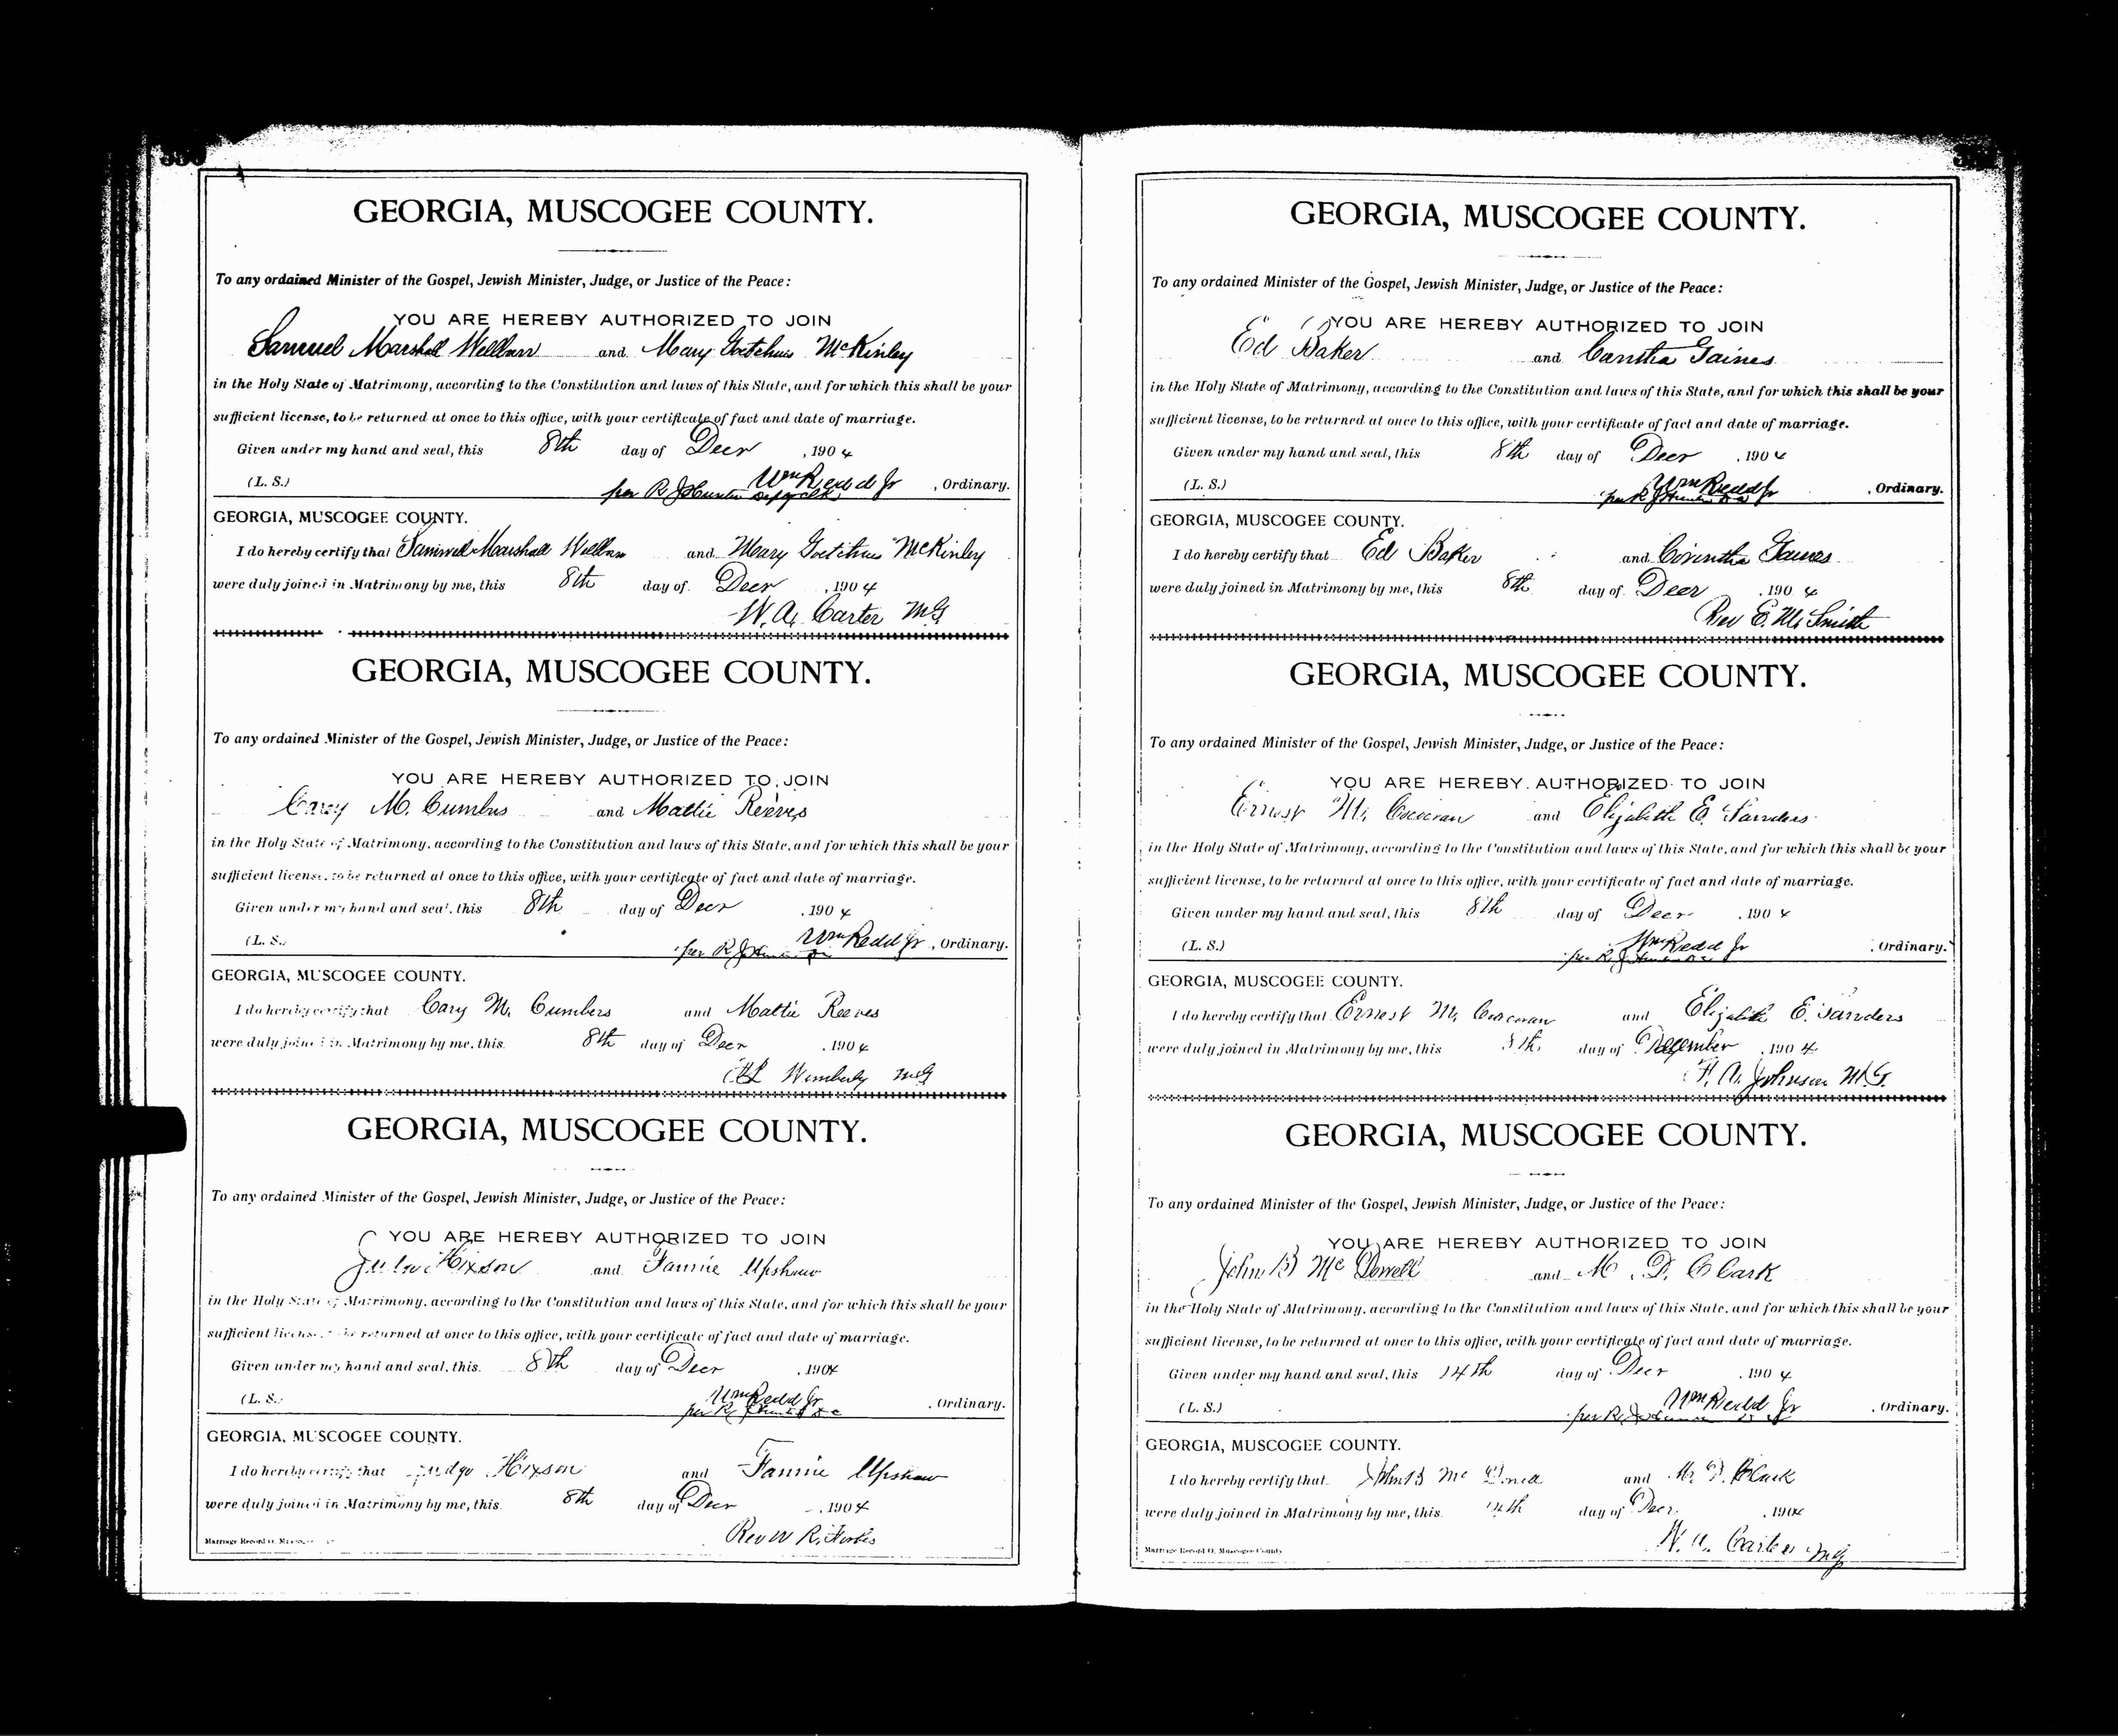 GEORGIA, MUSCOGEE COUNTY.
To any ordained Minister of the Gospel, Jewish Minister, Judge, or Justice of the Peace:
YOU ARE HEREBY AUTHORIZED TO JOIN
Samuel Marshall Wellborn and Mary Goetchius McKinley
in the Holy State of Matrimony, according to the Constitution and laws of this State, and for which this shall be your
sufficient license, to be returned at once to this office, with your certificate of fact and date of marriage.
Given under my hand and seal, this 8th day of Decr , 1904
(L. S.) Wm Redd Jr , Ordinary.
per R J Hunter Depy Clk
GEORGIA, MUSCOGEE COUNTY.
I do hereby certify that Samuel Marshall and Mary McKinley
were duly joined in Matrimony by me, this 8th day of Decr , 1904
W. A. Carter M.G
GEORGIA, MUSCOGEE COUNTY.
To any ordained Minister of the Gospel, Jewish Minister, Judge, or Justice of the Peace:
YOU ARE HEREBY AUTHORIZED TO JOIN
Cary M. Cumbus and Mattie Reeves
in the Holy State of Matrimony, according to the Constitution and laws of this State, and for which this shall be your
sufficient license, to be returned at once to this office, with your certificate of fact and date of marriage.
Given under my hand and seal, this 8th day of Decr , 1904
(L. S.) Wm Redd Jr , Ordinary.
per R J
GEORGIA, MUSCOGEE COUNTY.
I do hereby certify that Cary M. Cumbers and Mattie Reeves
were duly joined in Matrimony by me, this 8th day of Decr , 1904
Wimberly MG
GEORGIA, MUSCOGEE COUNTY.
To any ordained Minister of the Gospel, Jewish Minister, Judge, or Justice of the Peace:
YOU ARE HEREBY AUTHORIZED TO JOIN
Hixson and Fannie Upshaw
in the Holy State of Matrimony, according to the Constitution and laws of this State, and for which this shall be your
sufficient license, to be returned at once to this office, with your certificate of fact and date of marriage.
Given under my hand and seal, this 8th day of Decr , 1904
(L. S.) Wm Redd Jr , Ordinary.
per R J Hunter D C
GEORGIA, MUSCOGEE COUNTY.
I do hereby certify that Judge Hixson and Fannie Upshaw
were duly joined in Matrimony by me, this 8th day of Decr , 1904
Rev W R. Forbes
Marriage Record O,
GEORGIA, MUSCOGEE COUNTY.
To any ordained Minister of the Gospel, Jewish Minister, Judge, or Justice of the Peace:
YOU ARE HEREBY AUTHORIZED TO JOIN
Ed Baker and Gaines
in the Holy State of Matrimony, according to the Constitution and laws of this State, and for which this shall be your
sufficient license, to be returned at once to this office, with your certificate of fact and date of marriage.
Given under my hand and seal, this 8th day of Decr , 1904
(L. S.) Wm Redd Jr , Ordinary.
per R J Hunter
GEORGIA, MUSCOGEE COUNTY.
I do hereby certify that Ed Baker and Corintha Gaines
were duly joined in Matrimony by me, this 8th day of Decr , 1904
Rev E. M. Smith
GEORGIA, MUSCOGEE COUNTY.
To any ordained Minister of the Gospel, Jewish Minister, Judge, or Justice of the Peace:
YOU ARE HEREBY AUTHORIZED TO JOIN
Ernest M. Corcoran and Elizabeth E. Sanders
in the Holy State of Matrimony, according to the Constitution and laws of this State, and for which this shall be your
sufficient license, to be returned at once to this office, with your certificate of fact and date of marriage.
Given under my hand and seal, this 8th day of Decr , 1904
(L. S.) Wm Redd Jr , Ordinary.
per R. J Hunter
GEORGIA, MUSCOGEE COUNTY.
I do hereby certify that Ernest M. Corcoran and Elizabeth E. Sanders
were duly joined in Matrimony by me, this 8th day of December , 1904
F. A. Johnson M.G.
GEORGIA, MUSCOGEE COUNTY.
To any ordained Minister of the Gospel, Jewish Minister, Judge, or Justice of the Peace:
YOU ARE HEREBY AUTHORIZED TO JOIN
John B McDowell and M. D. Clark
in the Holy State of Matrimony, according to the Constitution and laws of this State, and for which this shall be your
sufficient license, to be returned at once to this office, with your certificate of fact and date of marriage.
Given under my hand and seal, this 14th day of Decr , 1904
(L. S.) Wm Redd Jr , Ordinary.
per R. J Hunter
GEORGIA, MUSCOGEE COUNTY.
I do hereby certify that John B and M. D.
were duly joined in Matrimony by me, this 14th day of Decr , 1904
W. A. Carter MG
Marriage Record O, Muscogee County